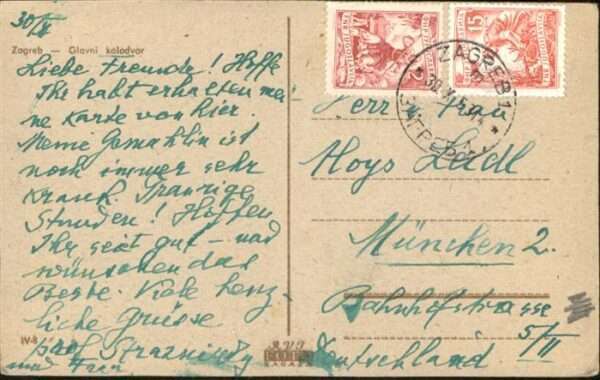 30/V
Zagreb — Glavni kolodvor
Liebe Freunde! Hoffe
Ihr habt erhalten mei
ne Karte von hier.
Meine Gemahlin ist
noch immer sehr
krank. Traurige
Stunden! Hoffen
Ihr seit gut – und
wünschen das
Beste. Viele herz-
liche Grüsse
und Frau
IV-8
15
ZAGREB 1
Herr u. Frau
Hoys Leidl
München 2.
Bahnhofstrasse
5/II
Deutschland.